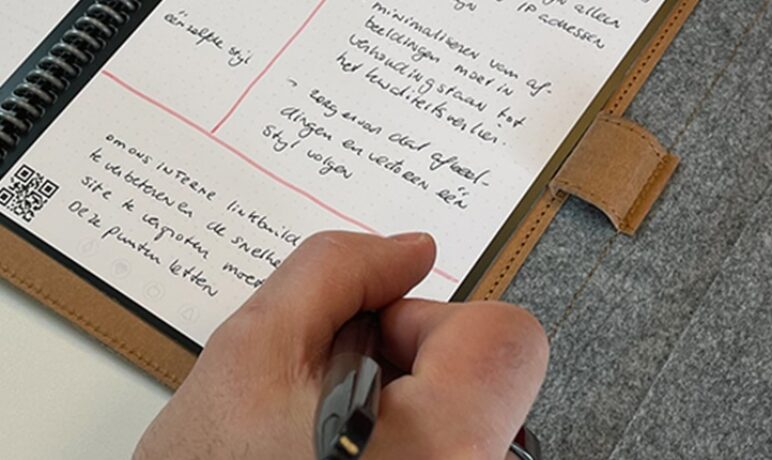 één zelfde stijl
alleen
IP adressen
minimaliseren van af-
beeldingen moet in
verhouding staan tot
het kwaliteitsverlies.
→ zorg ervan dat afbeel-
dingen en vectoren één
stijl volgen
om ons interne linkbuild
te verbeteren en de snelhe
site te vergroten moe
deze punten letten